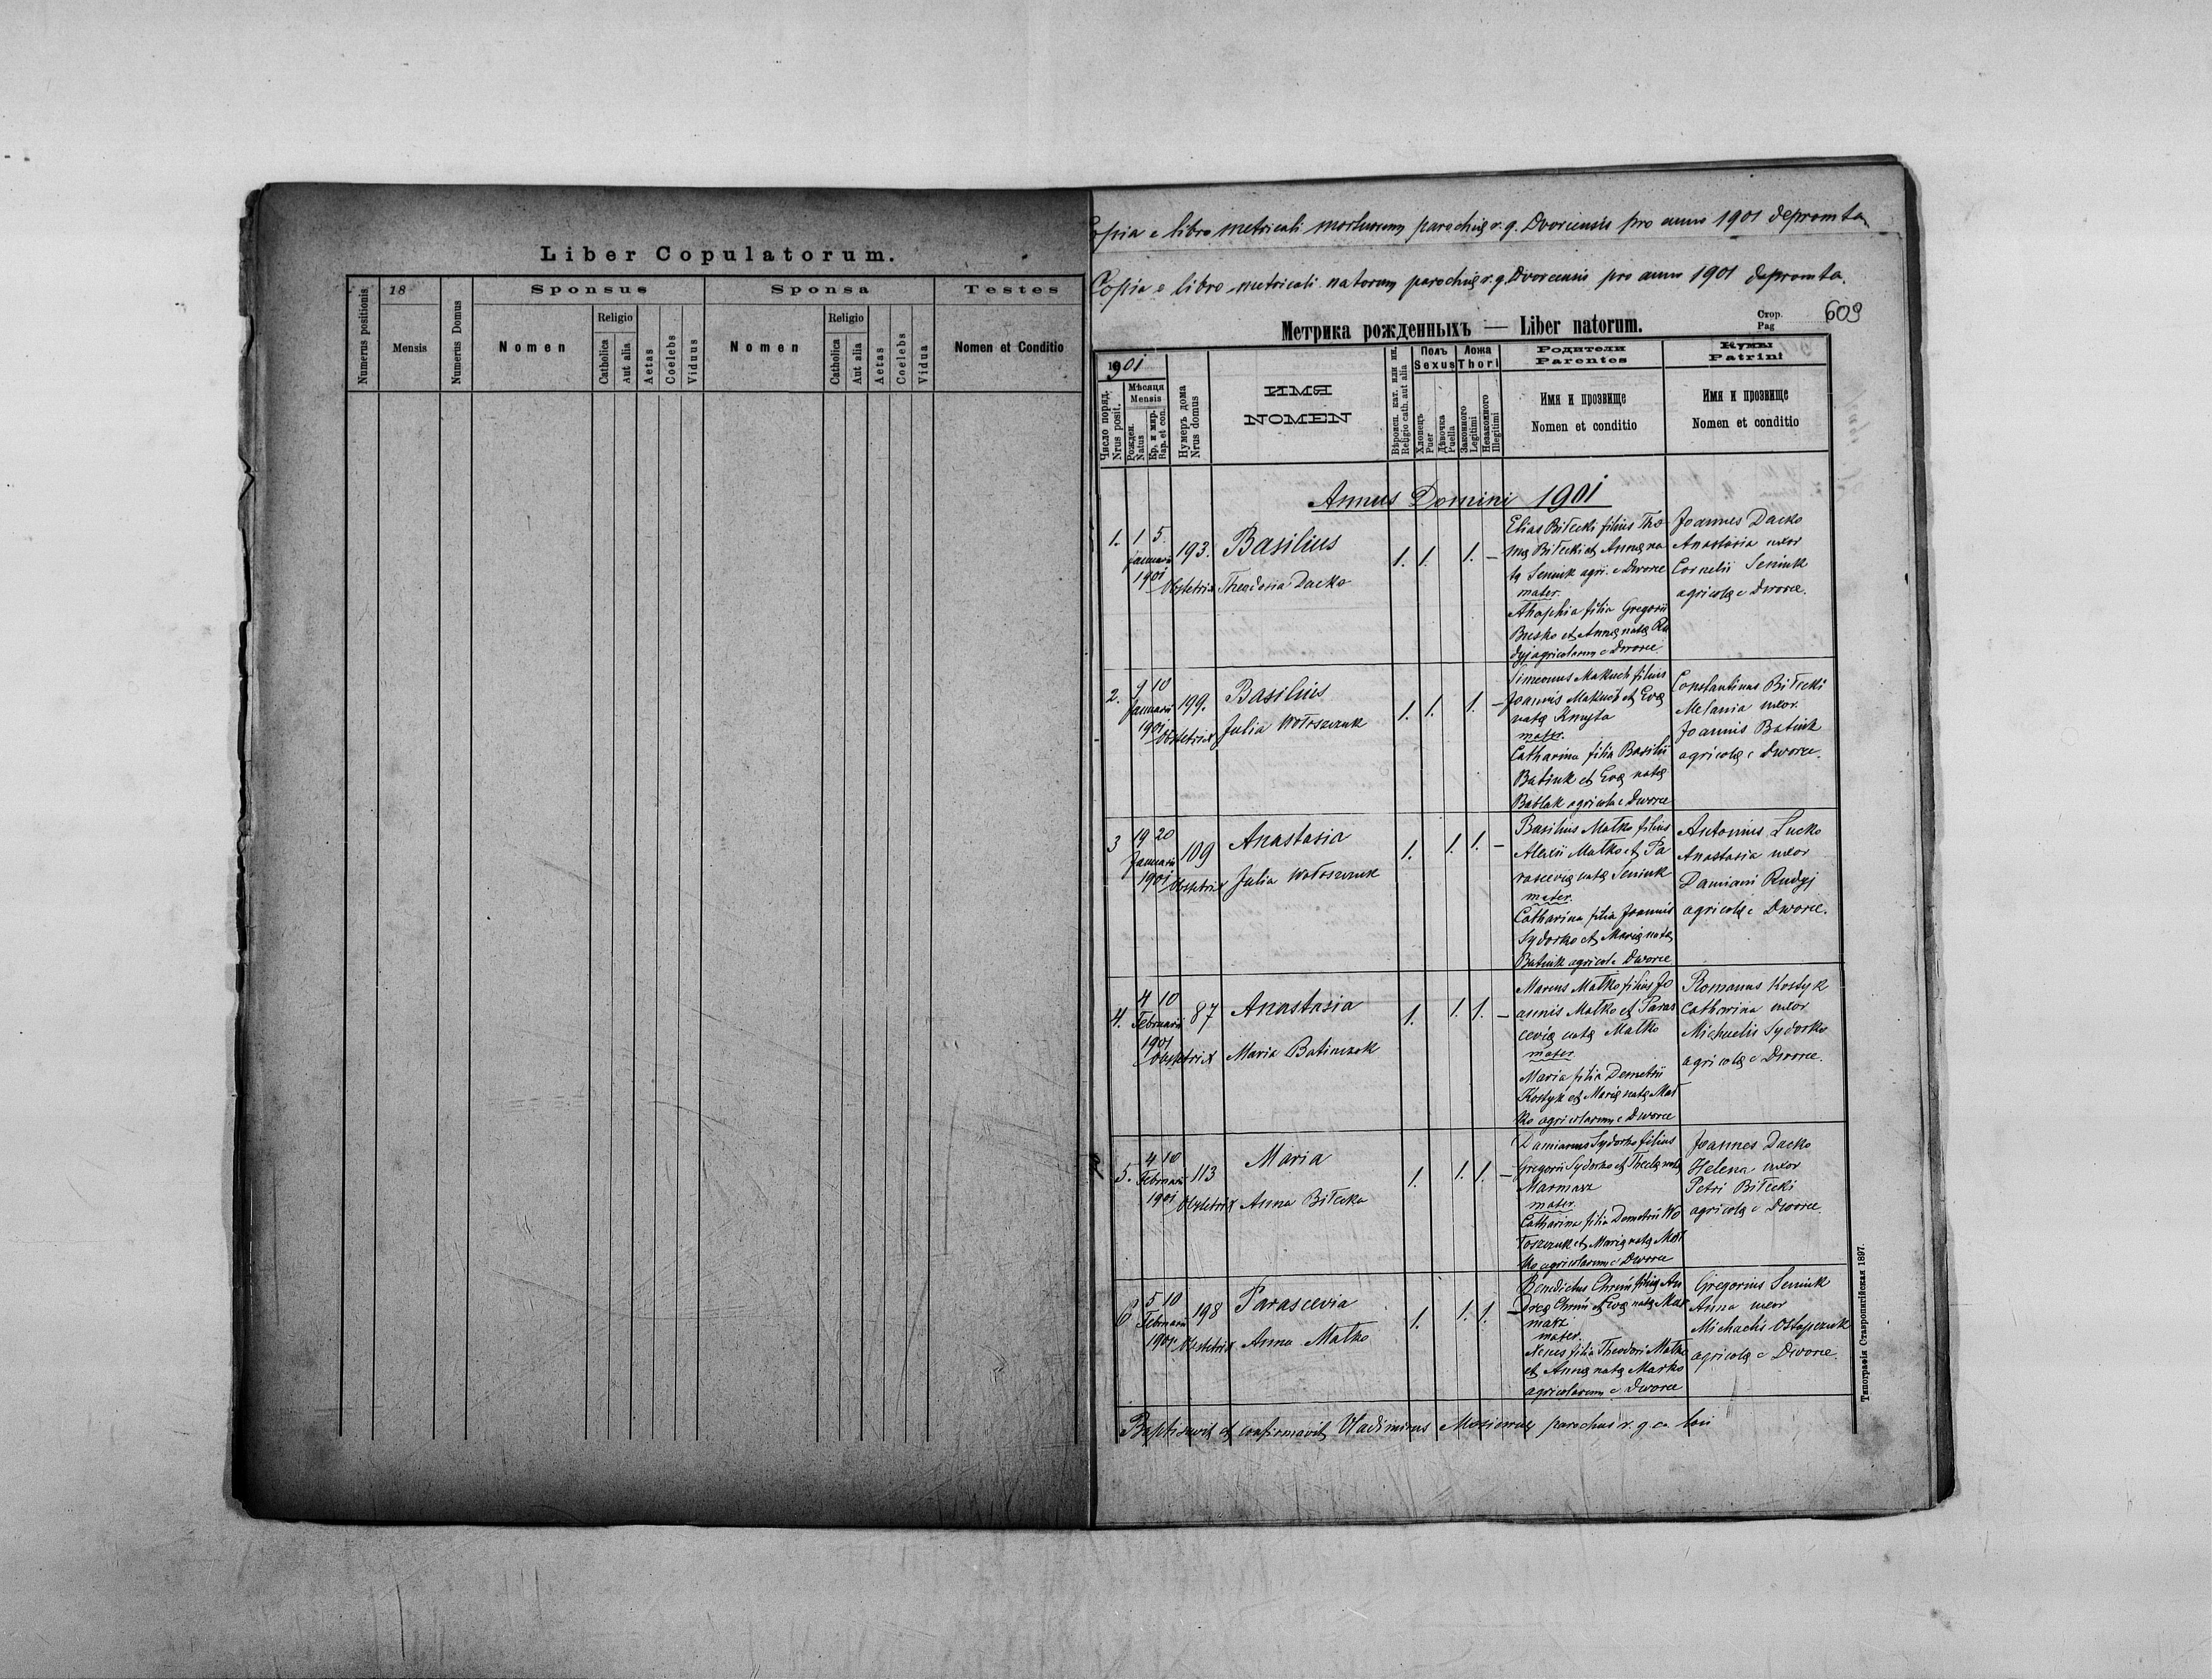 Liber Copulatorum.
Numerus positionis
18
Mensis
Numerus Domus
Sponsus
Nomen
Religio
Catholica
Aut alia
Aetas
Coelebs
Viduus
Sponsa
Nomen
Religio
Catholica
Aut alia
Aetas
Coelebs
Vidua
Testes
Nomen et Conditio
Copia e libro metricali mortuorum parochię r. g. Dvorcensis pro anno 1901 depromta
Copia e libro metricali natorum parochię r. g. Dvorcensis pro anno 1901 depromta.
Метрика рожденныхъ — Liber natorum.
Стор.
Pag
609
1901
Число поряд.
Nrus posit.
Мѣсяця
Mensis
Рожден.
Natus
Кр. и мир.
Bap. et con.
Нумеръ дома
Nrus domus
ИМЯ
NOMEN
Вѣроисп. кат. или ин.
Religio cath. aut alia
Полъ
Sexus
Хлопецъ
Puer
Дѣвочка
Puella
Ложа
Thori
Законного
Legitimi
Незаконного
Illegitimi
Родители
Parentes
Имя и прозвище
Nomen et conditio
Кумы
Patrini
Имя и прозвище
Nomen et conditio
Annus Domini 1901
1. 1 5. Januarii 1901 193. Basilius 1. 1. 1. —
Obstetrix Theodosia Dacko
Elias Biłecki filius Tho
mę Biłecki et Annę na
tę Seniuk agri. e Dworce
mater.
Ahaphia filia Gregorii
Busko et Annę natę Ru
dyj agricolarum e Dworce
Joannes Dacko
Anastasia uxor
Cornelii Seniuk
agricolę e Dworce.
2. 9 10 Januarii 1901 199. Basilius 1. 1. 1. —
Obstetrix Julia Wołoszczuk
Simeonus Makuch filius
Joannis Makuch et Evę
natę Kmyta
mater.
Catharina filia Basilii
Batiuk et Evę natę
Bablak agricolę e Dworce
Constantinus Biłecki
Melania uxor
Joannis Batiuk
agricolę e Dworce.
3 19 20 Januarii 1901 109 Anastasia 1. 1. 1. —
Obstetrix Julia Wołoszczuk
Basilius Małko filius
Alexii Małko et Pa
rascevię natę Seniuk
mater.
Catharina filia Joannis
Sydorko et Marię natę
Batiuk agricolę Dworce
Antonius Lucko
Anastasia uxor
Damiani Rudyj
agricolę e Dworce.
4. 4 10 Februarii 1901 87 Anastasia 1. 1. 1. —
Obstetrix Maria Batiuczok
Marcus Małko filius Jo
annis Małko et Paras
cevię natę Małko
mater
Maria filia Demetrii
Kostyk et Marię natę Mał
ko agricolarum e Dworce
Romanus Kostyk
Catharina uxor
Michaelis Sydorko
agricolę e Dworce.
5. 4 10 Februarii 1901 113 Maria 1. 1. 1. —
Obstetrix Anna Biłecka
Damianus Sydorko filius
Gregorii Sydorko et Theclę natę
Marmasz
mater.
Catharina filia Demetrii Wo
łoszczuk et Marię natę Mał
ko agricolarum e Dworce
Joannes Dacko
Helena uxor
Petri Biłecki
agricolę e Dworce.
6 5 10 Februarii 1901 198 Parascevia 1. 1. 1. —
Obstetrix Anna Małko
Benedictus filius An
dreę et Evę natę Mar
masz
mater.
filia Theodori Małko
et Annę natę Marko
agricolarum e Dworce
Gregorius Seniuk
Anna uxor
Michaelis Ostapczuk
agricolę e Dworce.
Baptisavit et confirmavit Vladimirus parochus r. g. ca. loci
Типографія Ставропигійская 1897.